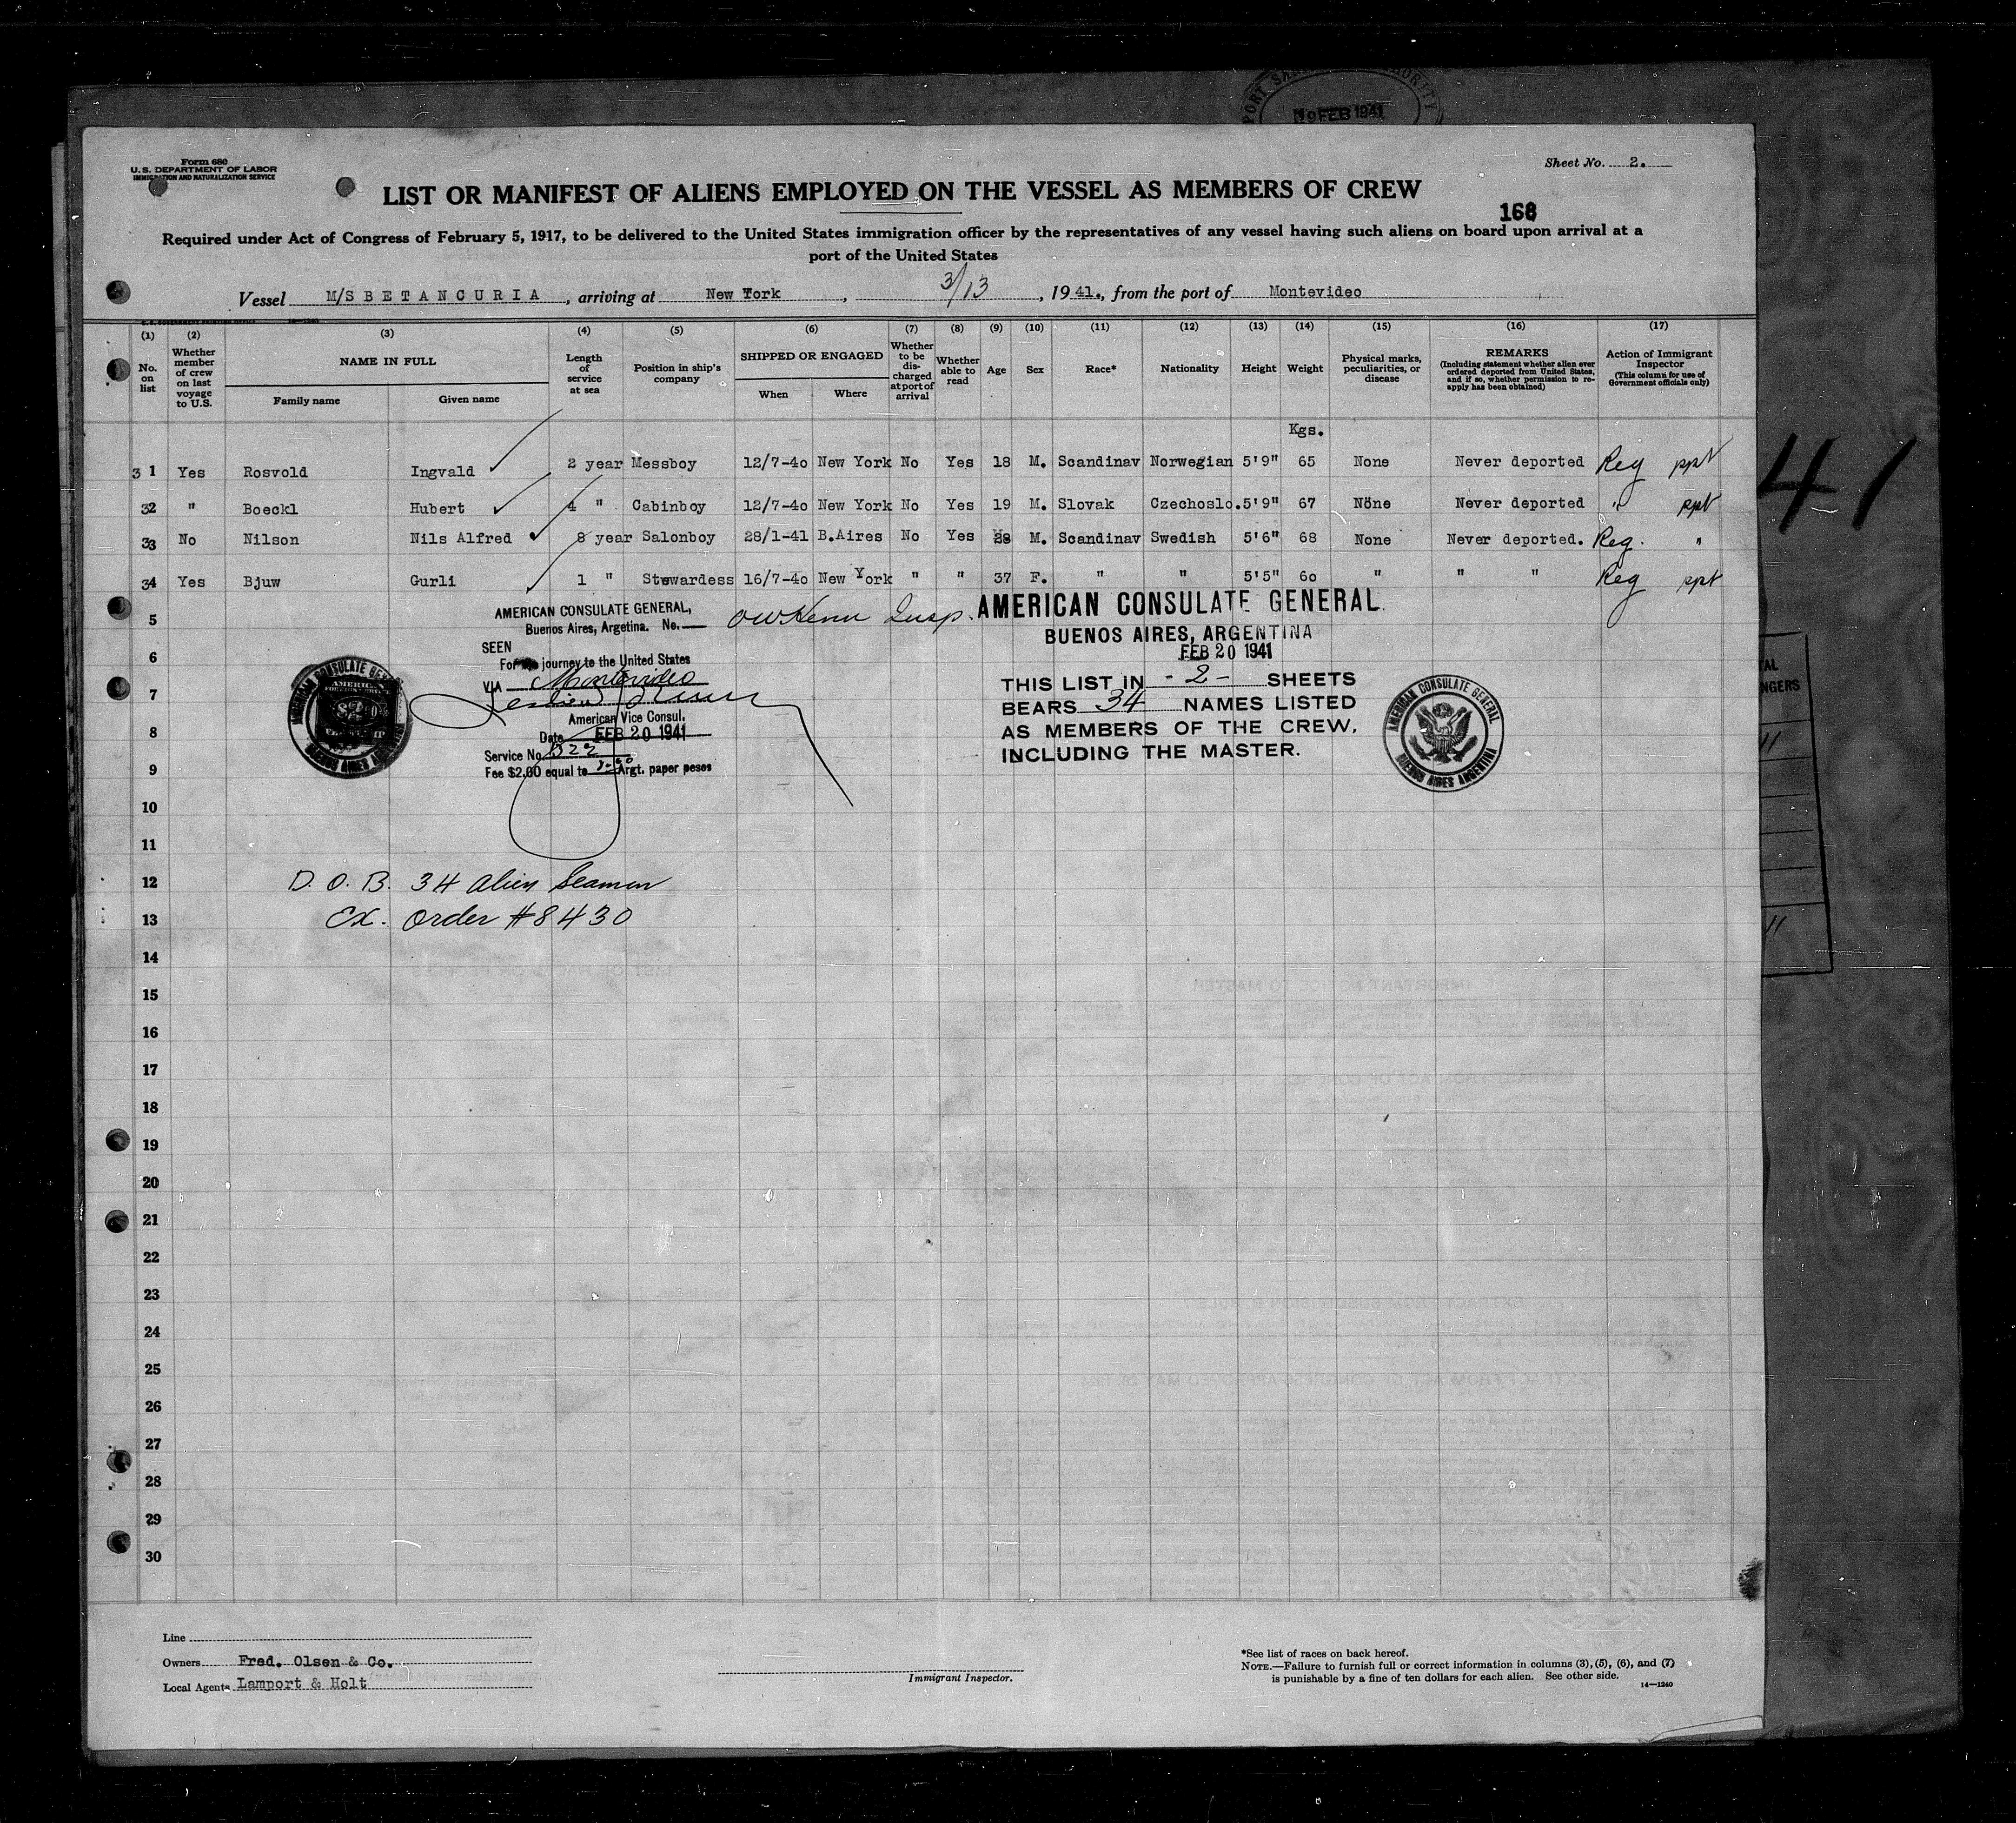 PORT SA ORITY
19 FEB 1941
Form 680
U. S. DEPARTMENT OF LABOR
IMMIGRATION AND NATURALIZATION SERVICE
Sheet No. 2.
LIST OR MANIFEST OF ALIENS EMPLOYED ON THE VESSEL AS MEMBERS OF CREW
168
Required under Act of Congress of February 5, 1917, to be delivered to the United States immigration officer by the representatives of any vessel having such aliens on board upon arrival at a
port of the United States
Vessel M/S BETANCURIA, arriving at New York, 3/13, 1941., from the port of Montevideo
(1) (2) (3) (4) (5) (6) (7) (8) (9) (10) (11) (12) (13) (14) (15) (16) (17)
No. on list
Whether member of crew on last voyage to U.S.
NAME IN FULL
Family name
Given name
Length of service at sea
Position in ship's company
SHIPPED OR ENGAGED
When
Where
Whether to be discharged at port of arrival
Whether able to read
Age
Sex
Race*
Nationality
Height
Weight
Physical marks, peculiarities, or disease
REMARKS
(Including statement whether alien ever ordered deported from United States, and if so, whether permission to re-apply has been obtained)
Action of Immigrant Inspector
(This column for use of Government officials only)
Kgs.
31 Yes Rosvold Ingvald 2 year Messboy 12/7-40 New York No Yes 18 M. Scandinav Norwegian 5'9" 65 None Never deported Reg ppt
32 " Boeckl Hubert 4 " Cabinboy 12/7-40 New York No Yes 19 M. Slovak Czechoslo. 5'9" 67 None Never deported " ppt
33 No Nilson Nils Alfred 8 year Salonboy 28/1-41 B.Aires No Yes 28 M. Scandinav Swedish 5'6" 68 None Never deported. Reg. "
34 Yes Bjuw Gurli 1 " Stewardess 16/7-40 New York " " 37 F. " " 5'5" 60 " " " Reg ppt
41
5
6
7
8
9
10
11
12
13
14
15
16
17
18
19
20
21
22
23
24
25
26
27
28
29
30
AMERICAN CONSULATE GENERAL,
Buenos Aires, Argetina. No.
SEEN
For journey to the United States
VIA Montevideo
American Vice Consul.
Date FEB 20 1941
Service No.
Fee $2.00 equal to Argt. paper pesos
AMERICAN CONSULATE GENERAL
BUENOS AIRES ARGENTINA
Insp.
AMERICAN CONSULATE GENERAL.
BUENOS AIRES, ARGENTINA
FEB 20 1941
THIS LIST IN - 2 - SHEETS
BEARS 34 NAMES LISTED
AS MEMBERS OF THE CREW,
INCLUDING THE MASTER.
AMERICAN CONSULATE GENERAL
BUENOS AIRES ARGENTINA
D. O. B. 34 alien Seamen
Ex. Order #8430
AL
NGERS
11
11
Line
Owners Fred. Olsen & Co.
Local Agents Lamport & Holt
Immigrant Inspector.
*See list of races on back hereof.
NOTE.—Failure to furnish full or correct information in columns (3), (5), (6), and (7)
is punishable by a fine of ten dollars for each alien. See other side.
14—1240